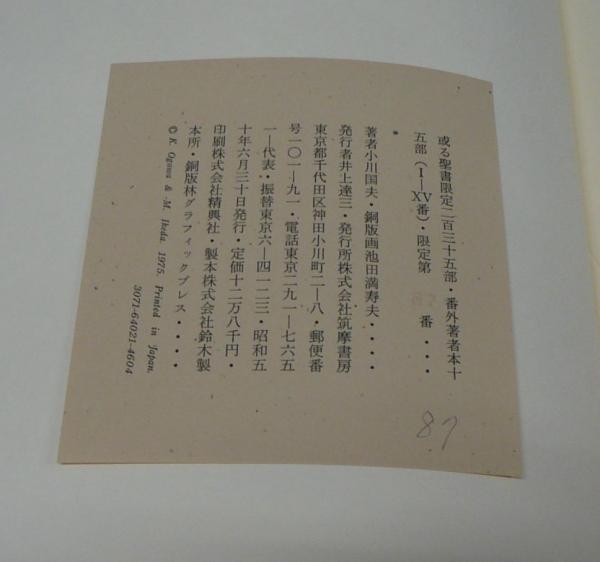 或る聖書限定二百三十五部・番外著者本十
五部（I—XV番）・限定第 87 番・・・
*
著者小川国夫・銅版画池田満寿夫・・・・
発行者井上達三・発行所株式会社筑摩書房
東京都千代田区神田小川町二—八・郵便番
号一〇一—九一・電話東京二九一—七六五
一—代表・振替東京六—四一二三・昭和五
十年六月三十日発行・定価十二万八千円・
印刷株式会社精興社・製本株式会社鈴木製
本所・銅版林グラフィックプレス・・・・
© K. Ogawa & M. Ikeda. 1975. Printed in Japan.
3071-64021-4604
87